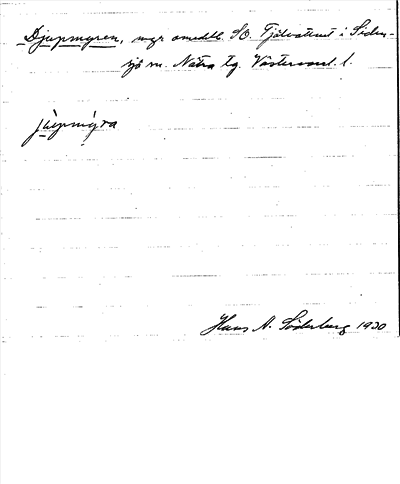 Djupmyren, myr omedelb. SO. Fjälvattnet i Siden-
sjö sn. Nätra tg. Västernorrl. l.
jùpmýra
Hans A. Söderberg 1930